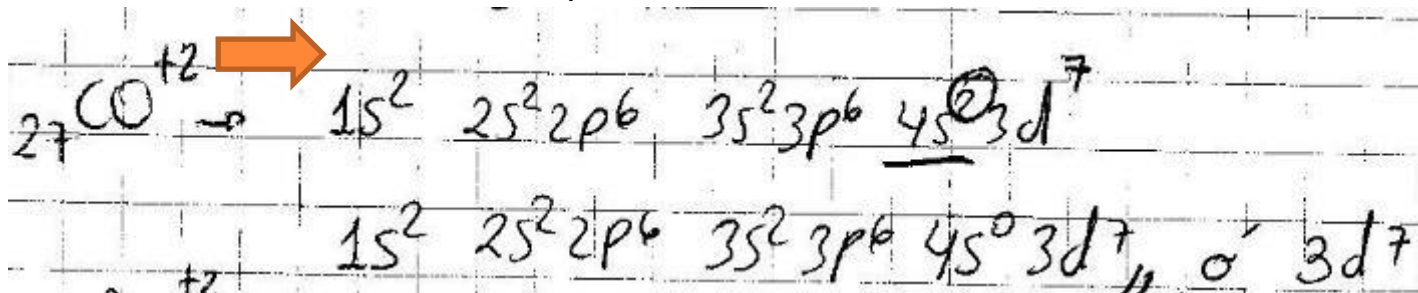 ₂₇CO⁺² → 1s² 2s² 2p⁶ 3s² 3p⁶ 4s² 3d⁷
1s² 2s² 2p⁶ 3s² 3p⁶ 4s⁰ 3d⁷,, ó 3d⁷
+2